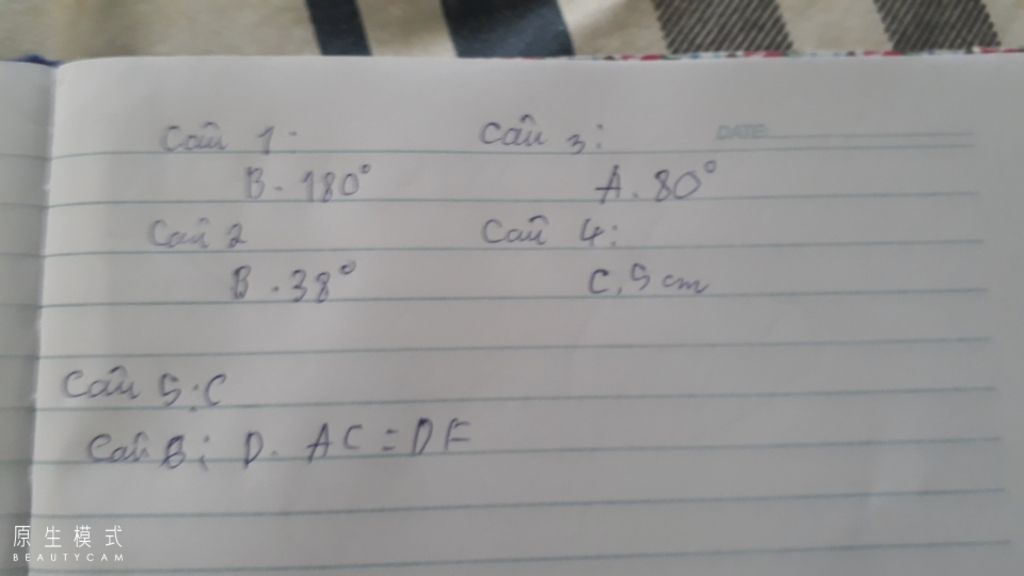 Câu 1:
B. 180°
Câu 2
B. 38°
Câu 3:
A. 80°
Câu 4:
C, 5 cm
Câu 5: C
Câu B: D. AC = DF
DATE:
原生模式
BEAUTYCAM